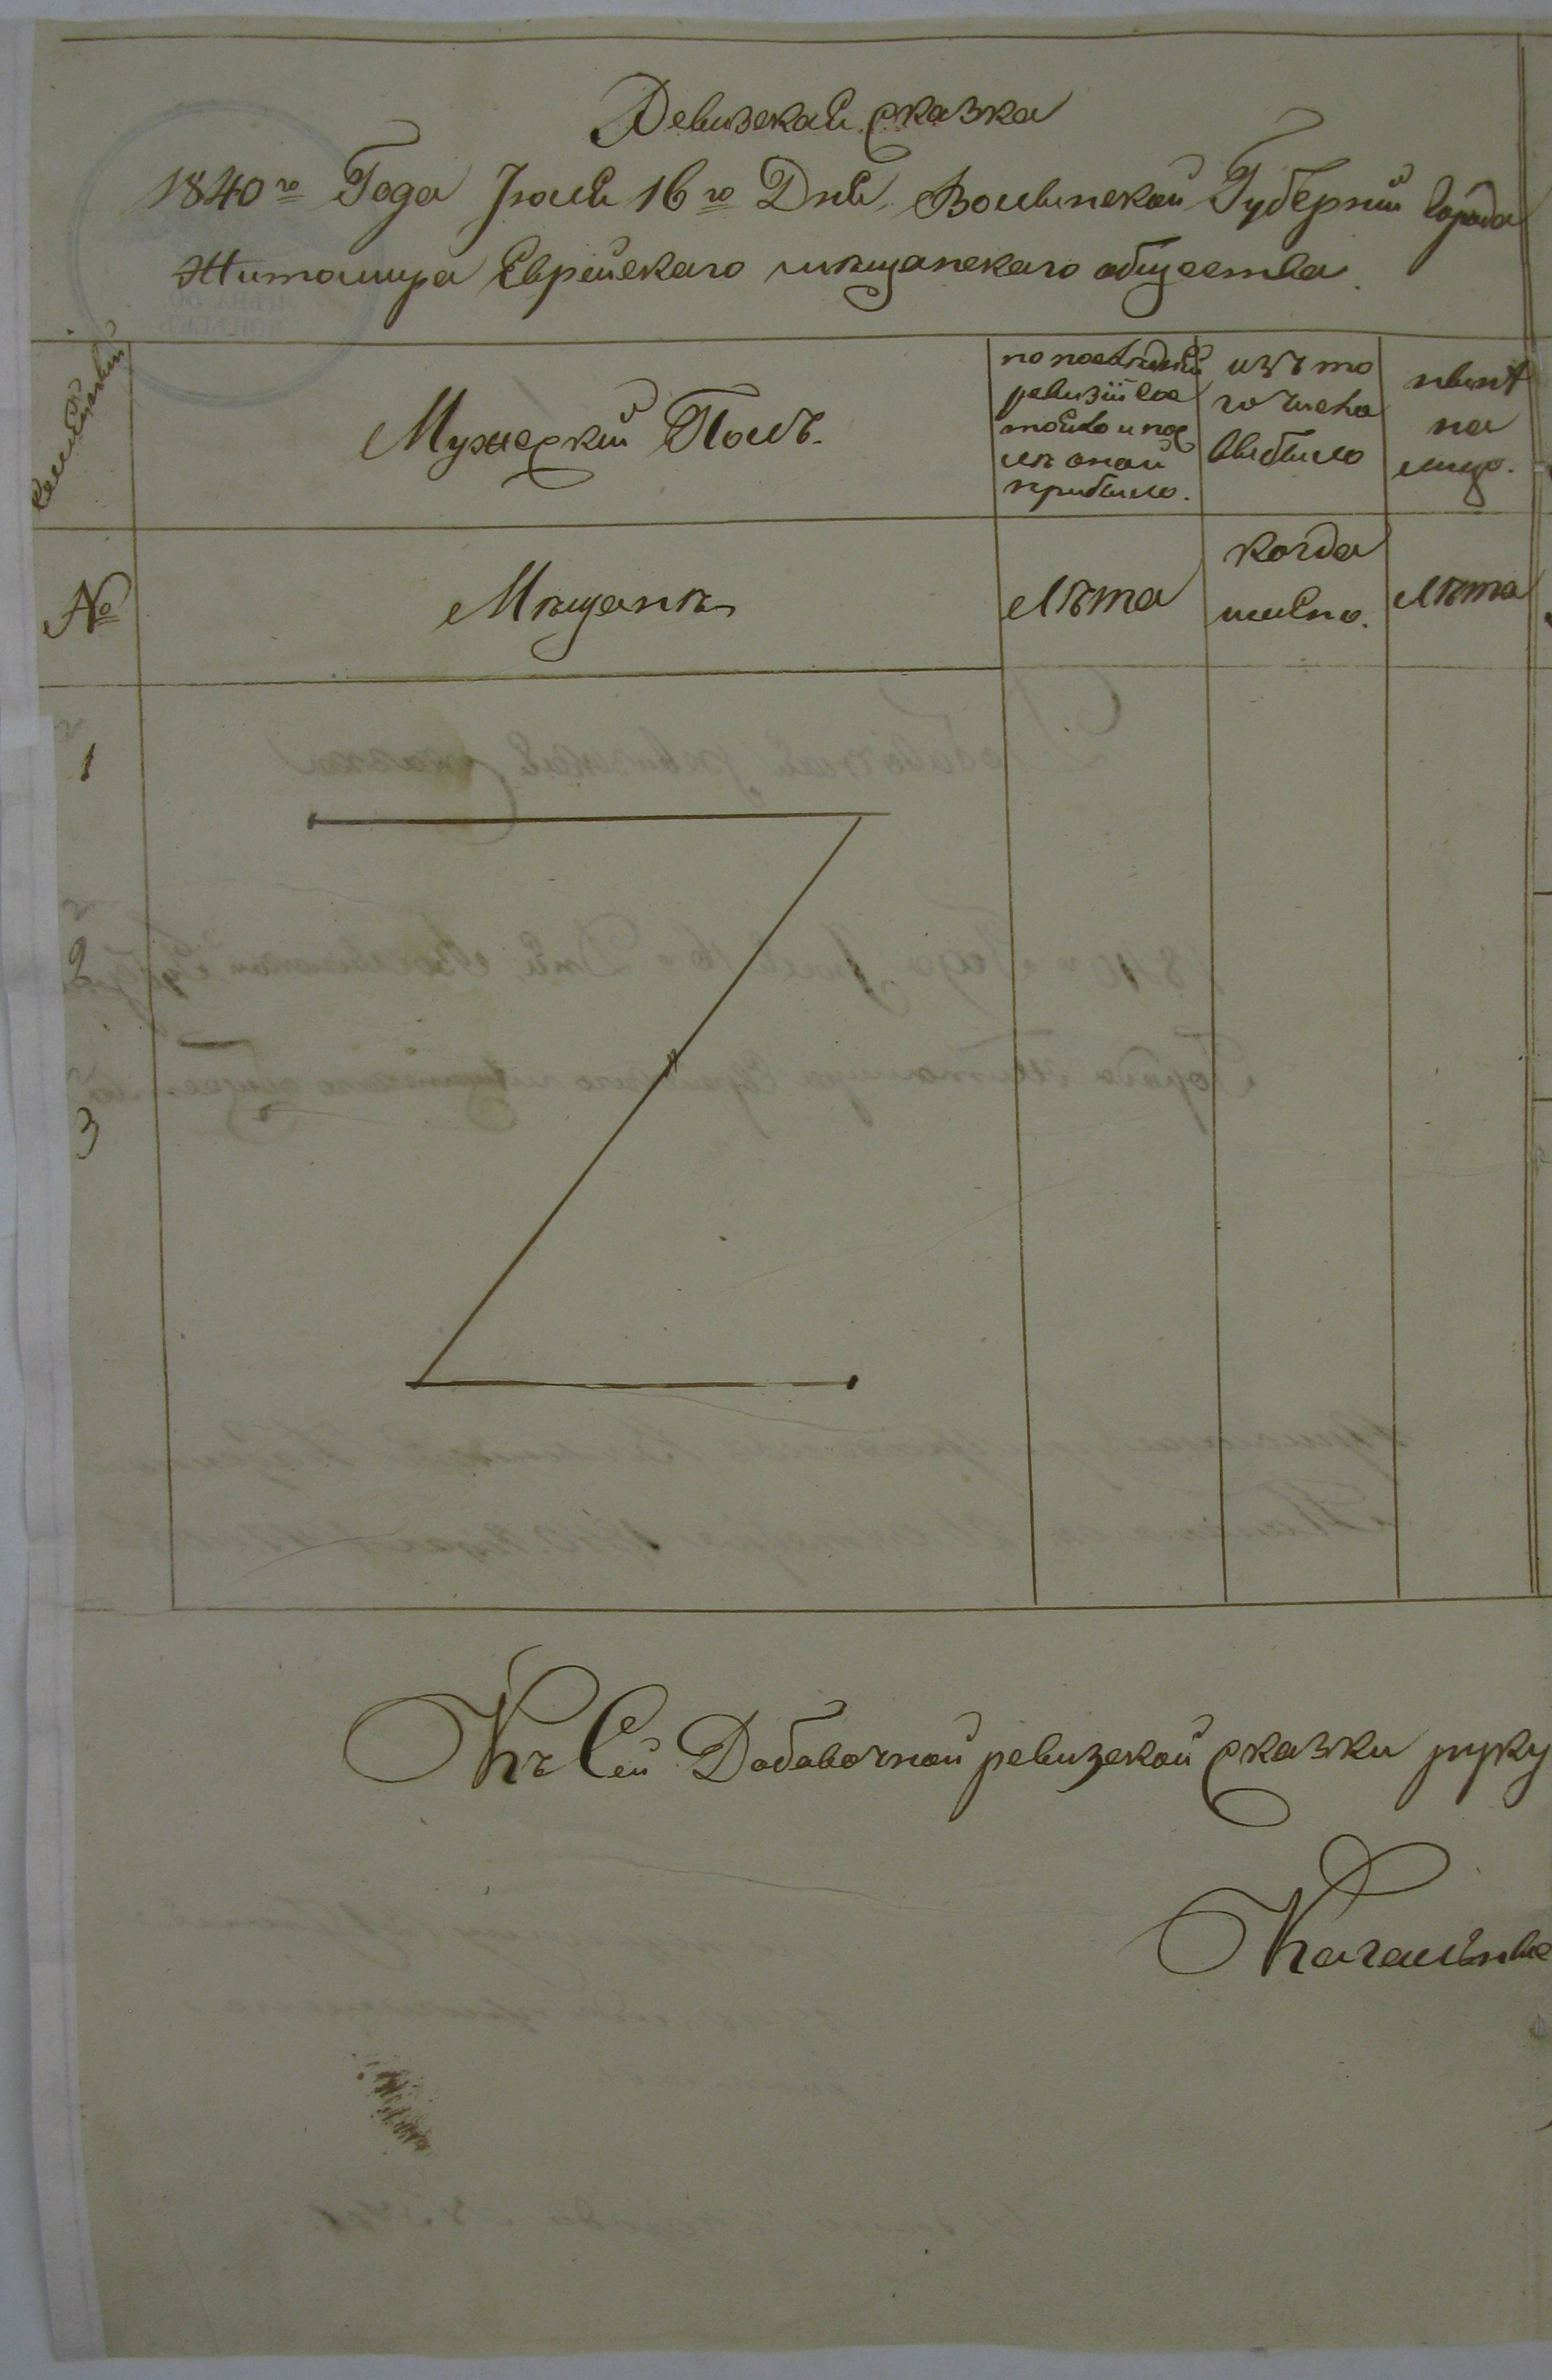 Ревизская сказка
1840го Года Июля 16го Дня, Волынской Губернии Города
Житомира Еврейскаго мѣщанскаго общества.
Семейства
Мужеский Полъ.
по последней
ревизіи сос
тояло и пос
лѣ оной
прибыло.
изъ то
го числа
выбыло
нынѣ
на
лицо.
№
Мѣщанѣ
Лѣта
когда
имено.
Лѣта
1
2
3
Къ Сей Добавочной ревизской сказки руку
Кагальные